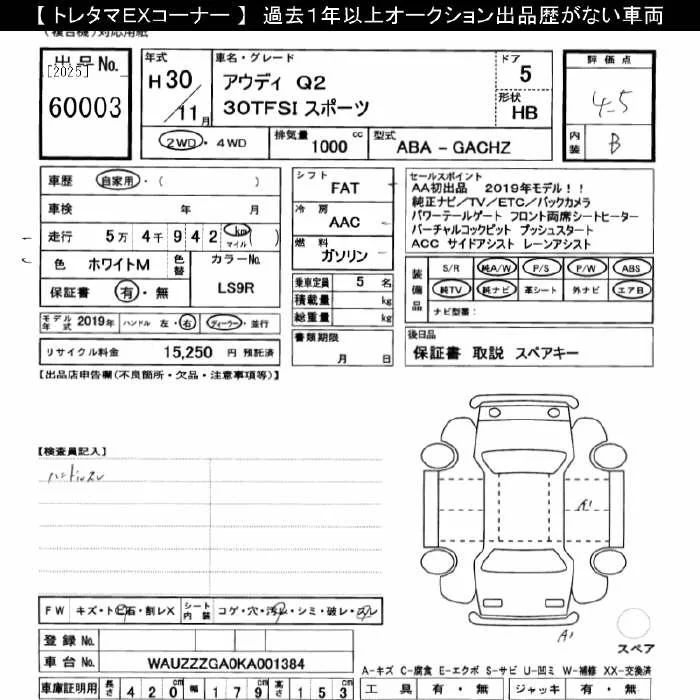 【 トレタマEXコーナー 】 過去1年以上オークション出品歴がない車両
(複合機)対応用紙
出品No.
[2025]
60003
年式
H30
11月
車名・グレード
アウディ Q2
30TFSI スポーツ
ドア
5
形状
HB
2WD・4WD
排気量 1000 cc
型式 ABA - GACHZ
評価点
4.5
内装 B
車歴 自家用・( )
車検 年 月
走行 5万 4千 9 4 2 km マイル ( )
色 ホワイトM
色替
カラーNo.
LS9R
保証書 有・無
モデル年式 2019年 ハンドル 左・右 ディーラー・並行
リサイクル料金 15,250 円 預託済
シフト
FAT
冷房
AAC
燃料
ガソリン
乗車定員 5 名
積載量 kg
総重量 kg
書類期限
月 日
セールスポイント
AA初出品 2019年モデル!!
純正ナビ/TV/ETC/バックカメラ
パワーテールゲート フロント両席シートヒーター
バーチャルコックピット プッシュスタート
ACC サイドアシスト レーンアシスト
装備品
S/R 純A/W P/S P/W ABS
純TV 純ナビ 革シート 外ナビ エアB
ナビ型番:
後日品
保証書 取説 スペアキー
【出品店申告欄(不良箇所・欠品・注意事項等)】
【検査員記入】
A1
A1
スペア
FW キズ・ト石・割レX
シート内装 コゲ・穴・汚レ・シミ・破レ・スレ
登録 No.
車台 No. WAUZZZGA0KA001384
車庫証明用 長さ 420cm 幅 179cm 高さ 153cm
A-キズ C-腐食 E-エクボ S-サビ U-凹ミ W-補修 XX-交換済
工具 有・無 ジャッキ 有・無